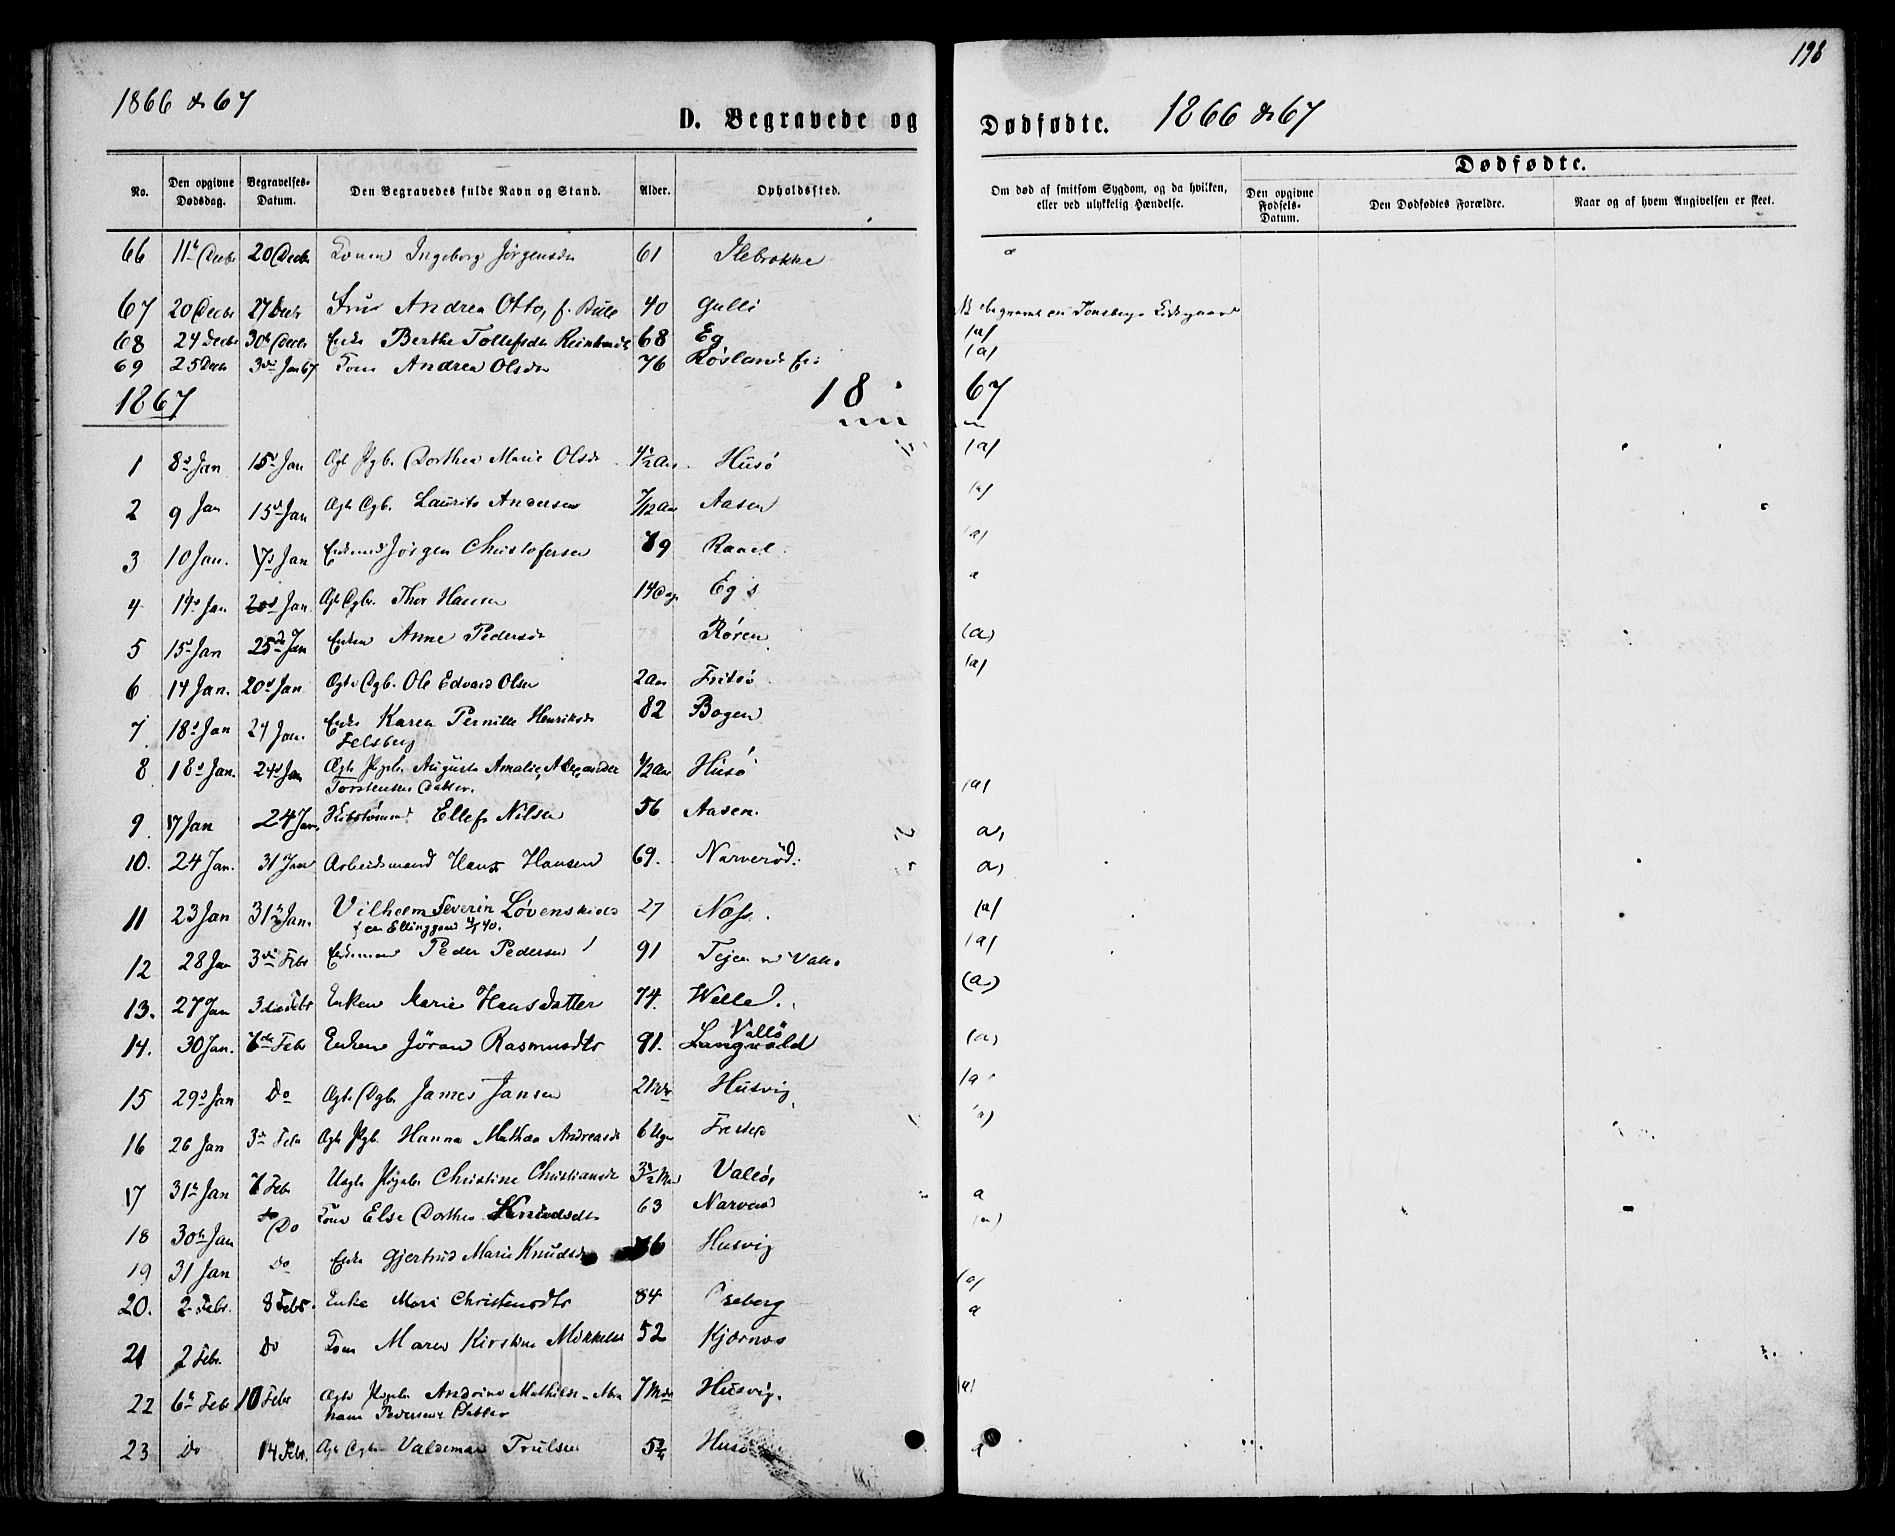 198
1866 & 67
D. Begravede og
Dødfødte. 1866 & 67
Dødfødte.
No.
Den opgivne Dødsdag.
Begravelses-Datum.
Den Begravedes fulde Navn og Stand.
Alder.
Opholdssted.
Om død af smitsom Sygdom, og da hvilken, eller ved ulykkelig Hændelse.
Den opgivne Fødsels-Datum.
Den Dødfødtes Forældre.
Naar og af hvem Angivelsen er skeet.
66 11te Decbr 20 Decbr Konen Ingeborg Jørgensdr 61 Ilebrække a
67 20 Decbr 27 Decbr Frue Andrea Otto, f. Bull 40 Gulli
68 24 Decbr 30te Decbr Enke Berthe Tollefsdr 68 Eg (a)
69 25 Decbr 3die Jan 67 Kone Andrea Olsdr 76 (a)
1867
18
67
1 8de Jan 15de Jan Ægte Pgb. Dorthea Marie Olsdr 4½ Aar Husø (a)
2 9 Jan 15de Jan Ægte Dgb. Laurits Andersen 7/12 Aar Aasen (a)
3 10 Jan. 17de Jan Enkemand Jørgen Christofersen 79 Ravel (a)
4 14de Jan 20de Jan Ægte Dgb. Thor Hansen 14 Dage Eg a
5 15de Jan 25de Jan Enken Anne Pedersdr 78 Røren (a)
6 14 Jan. 20de Jan Ægte Dgb. Ole Edvard Olsen 2 Aar (a)
7 18de Jan 24 Jan. Enke Karen Pernille Henriksdr 82 Bogen
Felsberg
8 18de Jan. 24de Jan Ægte Pgb. Augusta Amalie, Alexander ½ Aar Husø (a)
Torstensens Datter.
9 17 Jan 24 Jan. Ellef Nilsen 56 Aasen. a,
10. 24 Jan. 31 Jan Arbeidsmand Hans Hansen 69. Narverød. a,
11 23 Jan 31te Jan. Vilhelm Severin Løvenskiold 27 Næss. (a)
12 28 Jan 3die Febr Enkemand Peder Pedersen 91 Tejen (a)
13. 27 Jan 3die Febr Enken Marie Hansdatter 74. Welle. (a)
14. 30 Jan. 7de Febr Enken Jøran Rasmusdtr 91. Vallø (a)
15 29de Jan Do Ægte Dgb. James Jansen 21 Husvig (a
16 26 Jan 3die Febr Ægte Pgb. Hanna Mathea Andreasdr 6 Uger (a)
17 31te Jan 7 Febr Uægte Pigeb. Christine Christiansdr 3½ Mnd Vallø, a
18 30te Jan Do Kone Else Dorthea Knudsdtr 63 Narverød (a)
19 31 Jan Do Enke Gjertrud Marie Knudsdr 76 Husvig
20. 2 Febr. 8 Febr. Enke Mari Christensdtr 84 Oseberg (a)
21 2 Febr. Do Kone Maren Kirstine Mikkelsdr 52 Kjærnæs a
22 6te Febr 10 Febr Ægte Pigeb. Andrine Mathilde - Abra 7 Mdr Husvig. (a)
ham Pedersens Datter
23 Do 14 Febr. Ægte Dgb. Valdemar Trulsen 5¾ Husø a